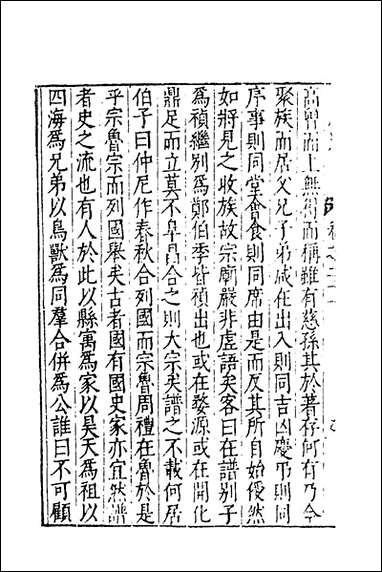 高曾而上無窮而稱雖有慈孫其於著存何有乃今
聚族而居父兄子弟咸在出入則同吉凶慶弔則同
序事則同堂會食則同席由是而反其所自始優然
如將見之收族故宗廟嚴非虛語矣客曰在譜別子
為禎繼別為鄭伯季皆禎出也或在婺源或在開化
鼎足而立莫不阜昌合之則大宗矣譜之不載何居
伯子曰仲尼作春秋合列國而宗魯周禮在魯於是
乎宗魯宗而列國舉矣古者國有國史家亦宜然譜
者史之流也有人於此以縣寓為家以昊天為祖以
四海為兄弟以鳥獸為同羣合併為公誰曰不可顧